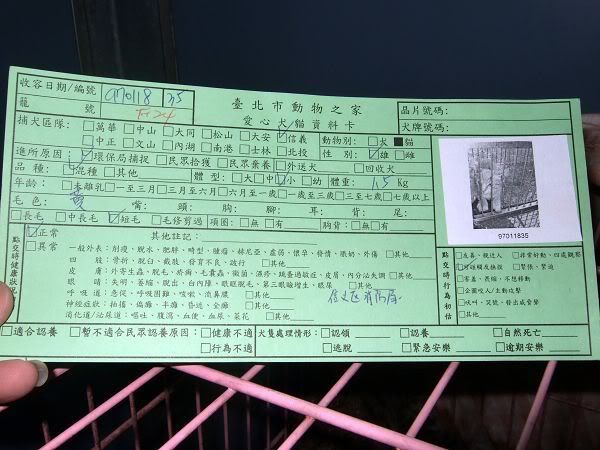 收容日期/編號 970118 35
臺北市動物之家
晶片號碼:
籠 號
愛心犬/貓資料卡
犬牌號碼:
捕犬區隊: □萬華 □中山 □大同 □松山 □大安 ☑信義
□中正 □文山 □內湖 □南港 □士林 □北投
動物類別: □犬 ■貓
性 別: ☑雄 □雌
進所原因: ☑環保局捕捉 □民眾拾獲 □民眾棄養 □外送犬 □回收犬
品 種: ☑混種 □其他
體型: □大 □中 ☑小 □幼 體重: 1.5 Kg
年齡: □未離乳 □一至三月 □三月至六月 □六月至一歲 □一歲至三歲 □三至七歲 □七歲以上
毛 色: 黃 嘴: 頭: 胸: 腳: 耳: 背: 足:
□長毛 □中長毛 ☑短毛 □毛修剪過 項圈: □無 □有 胸背: □無 □有
97011835
點交時健康狀況
☑正常
□異常
其他註記:
一般外表: 削瘦、脫水、肥胖、畸型、腫瘤、赫尼亞、虛弱、懷孕、發情、眼奶、外傷 □其他
四 肢: 骨折、脫臼、截肢、發育不良、跛行 □其他
皮 膚: 外寄生蟲、脫毛、疥癬、毛囊蟲、黴菌、濕疹、跳蚤過敏症、皮屑、內分泌失調 □其他
眼 睛: 失明、萎縮、脫出、白內障、眼瞼脫毛、第三眼瞼增生、眼屎 □其他
呼 吸 道: 急促、呼吸困難、咳嗽、流鼻膿 □其他
神經症狀: 抽搐、偏癱、半癱、昏迷、全癱 □其他
消化道/泌尿道: 嘔吐、腹瀉、血便、血尿、菜花 □其他
點交時行為初估
□友善、親近人 □非常好動、四處觀察
☑可接觸及撫摸 □緊張、緊迫
□害羞、畏縮、不想移動
□企圖咬人/主動攻擊
□吠叫、哭號、發出威脅聲
□其他
□適合認養 □暫不適合民眾認養原因: □健康不適
□行為不適
犬隻處理情形: □認領 □認養 □自然死亡
□逃脫 □緊急安樂 □逾期安樂